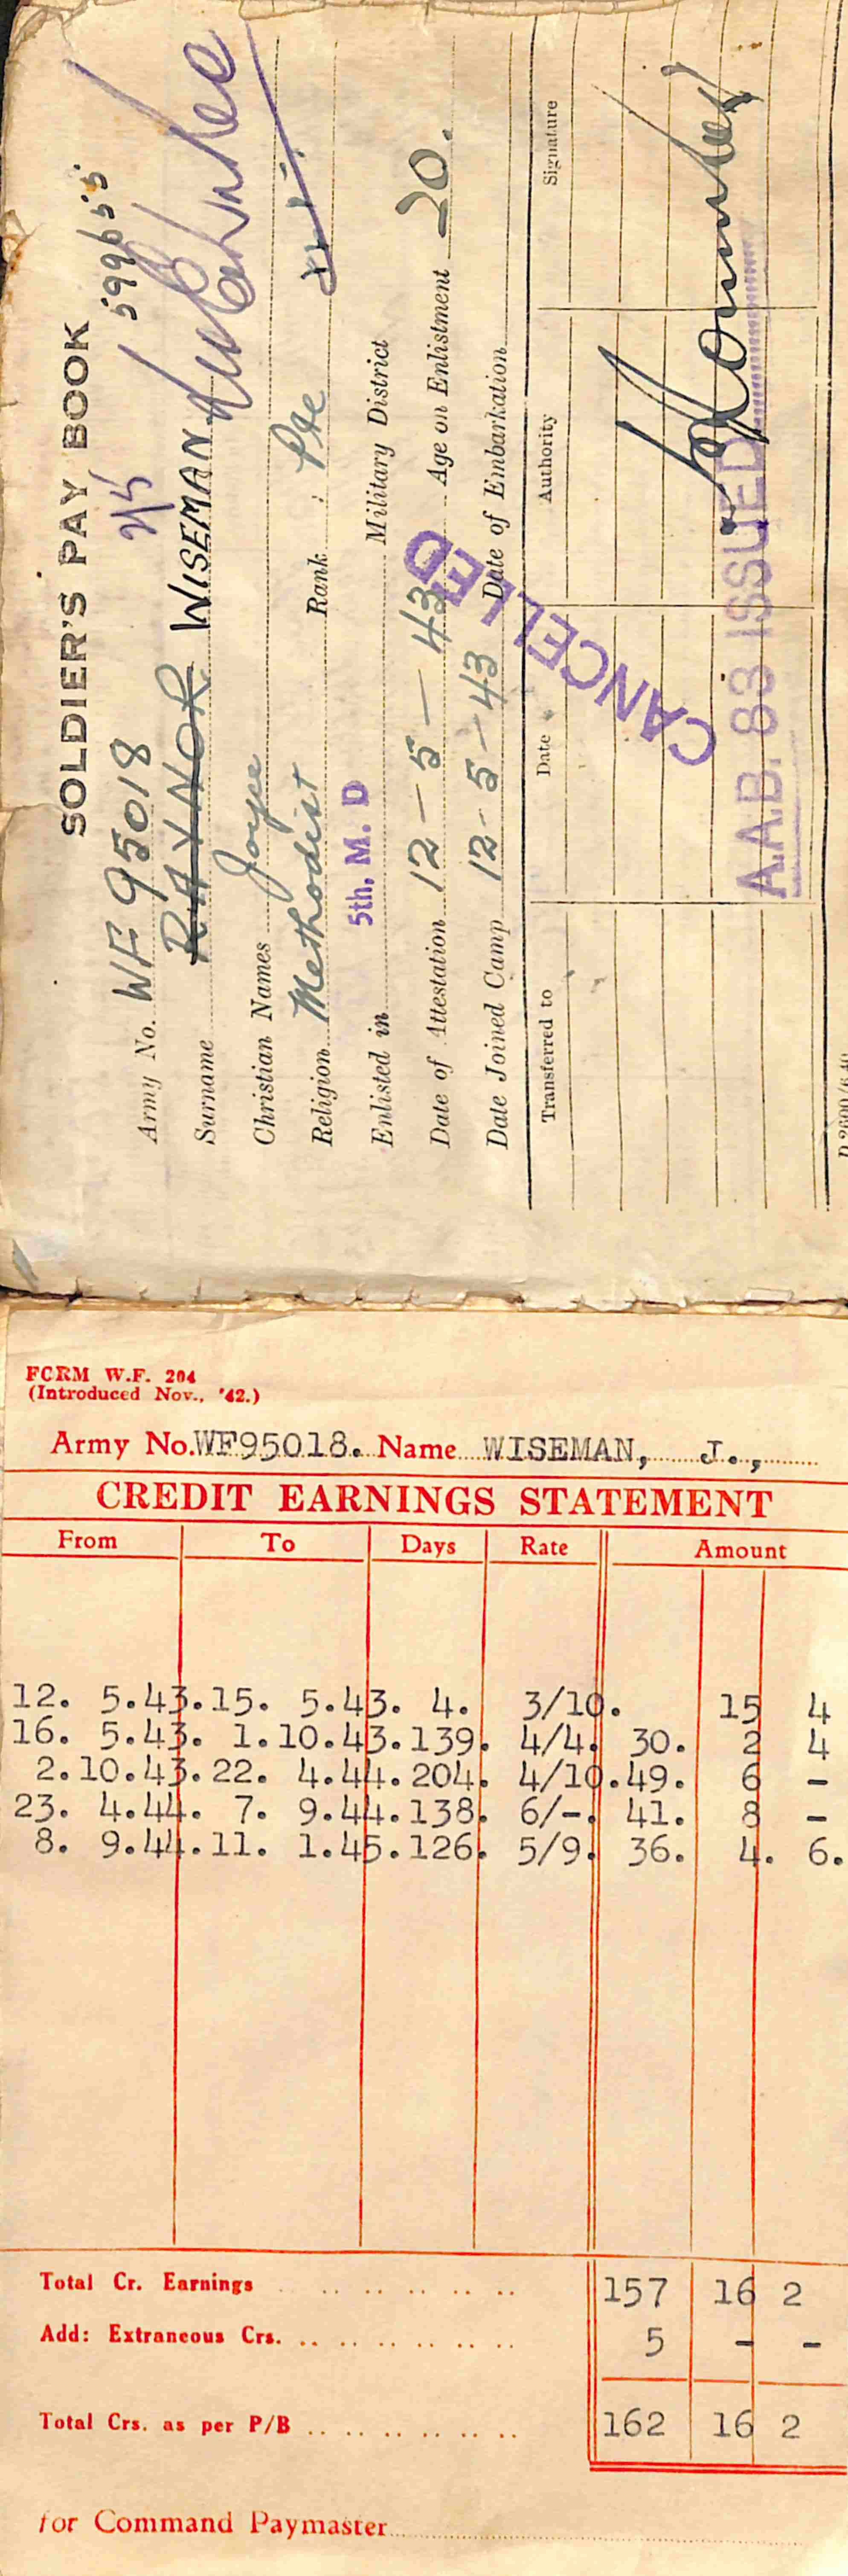 SOLDIER'S PAY BOOK
2/5 599655
Army No. WF 95018
Surname RAYNOR WISEMAN
Christian Names Joyce
Religion Methodist Rank Pte
Enlisted in 5th. M. D Military District
Date of Attestation 12-5-43 Age on Enlistment 20.
Date Joined Camp 12-5-43 Date of Embarkation
CANCELLED
Transferred to Date Authority Signature
A.A.B. 83 ISSUED
FORM W.F. 204
(Introduced Nov., '42.)
Army No. WF95018. Name WISEMAN, J.,
CREDIT EARNINGS STATEMENT
From To Days Rate Amount
12. 5.43. 15. 5.43. 4. 3/10. 15 4
16. 5.43. 1.10.43. 139. 4/4. 30. 2 4
2.10.43. 22. 4.44. 204. 4/10. 49. 6 -
23. 4.44. 7. 9.44. 138. 6/-. 41. 8 -
8. 9.44. 11. 1.45. 126. 5/9. 36. 4. 6.
Total Cr. Earnings 157 16 2
Add: Extraneous Crs. 5 - -
Total Crs. as per P/B 162 16 2
for Command Paymaster